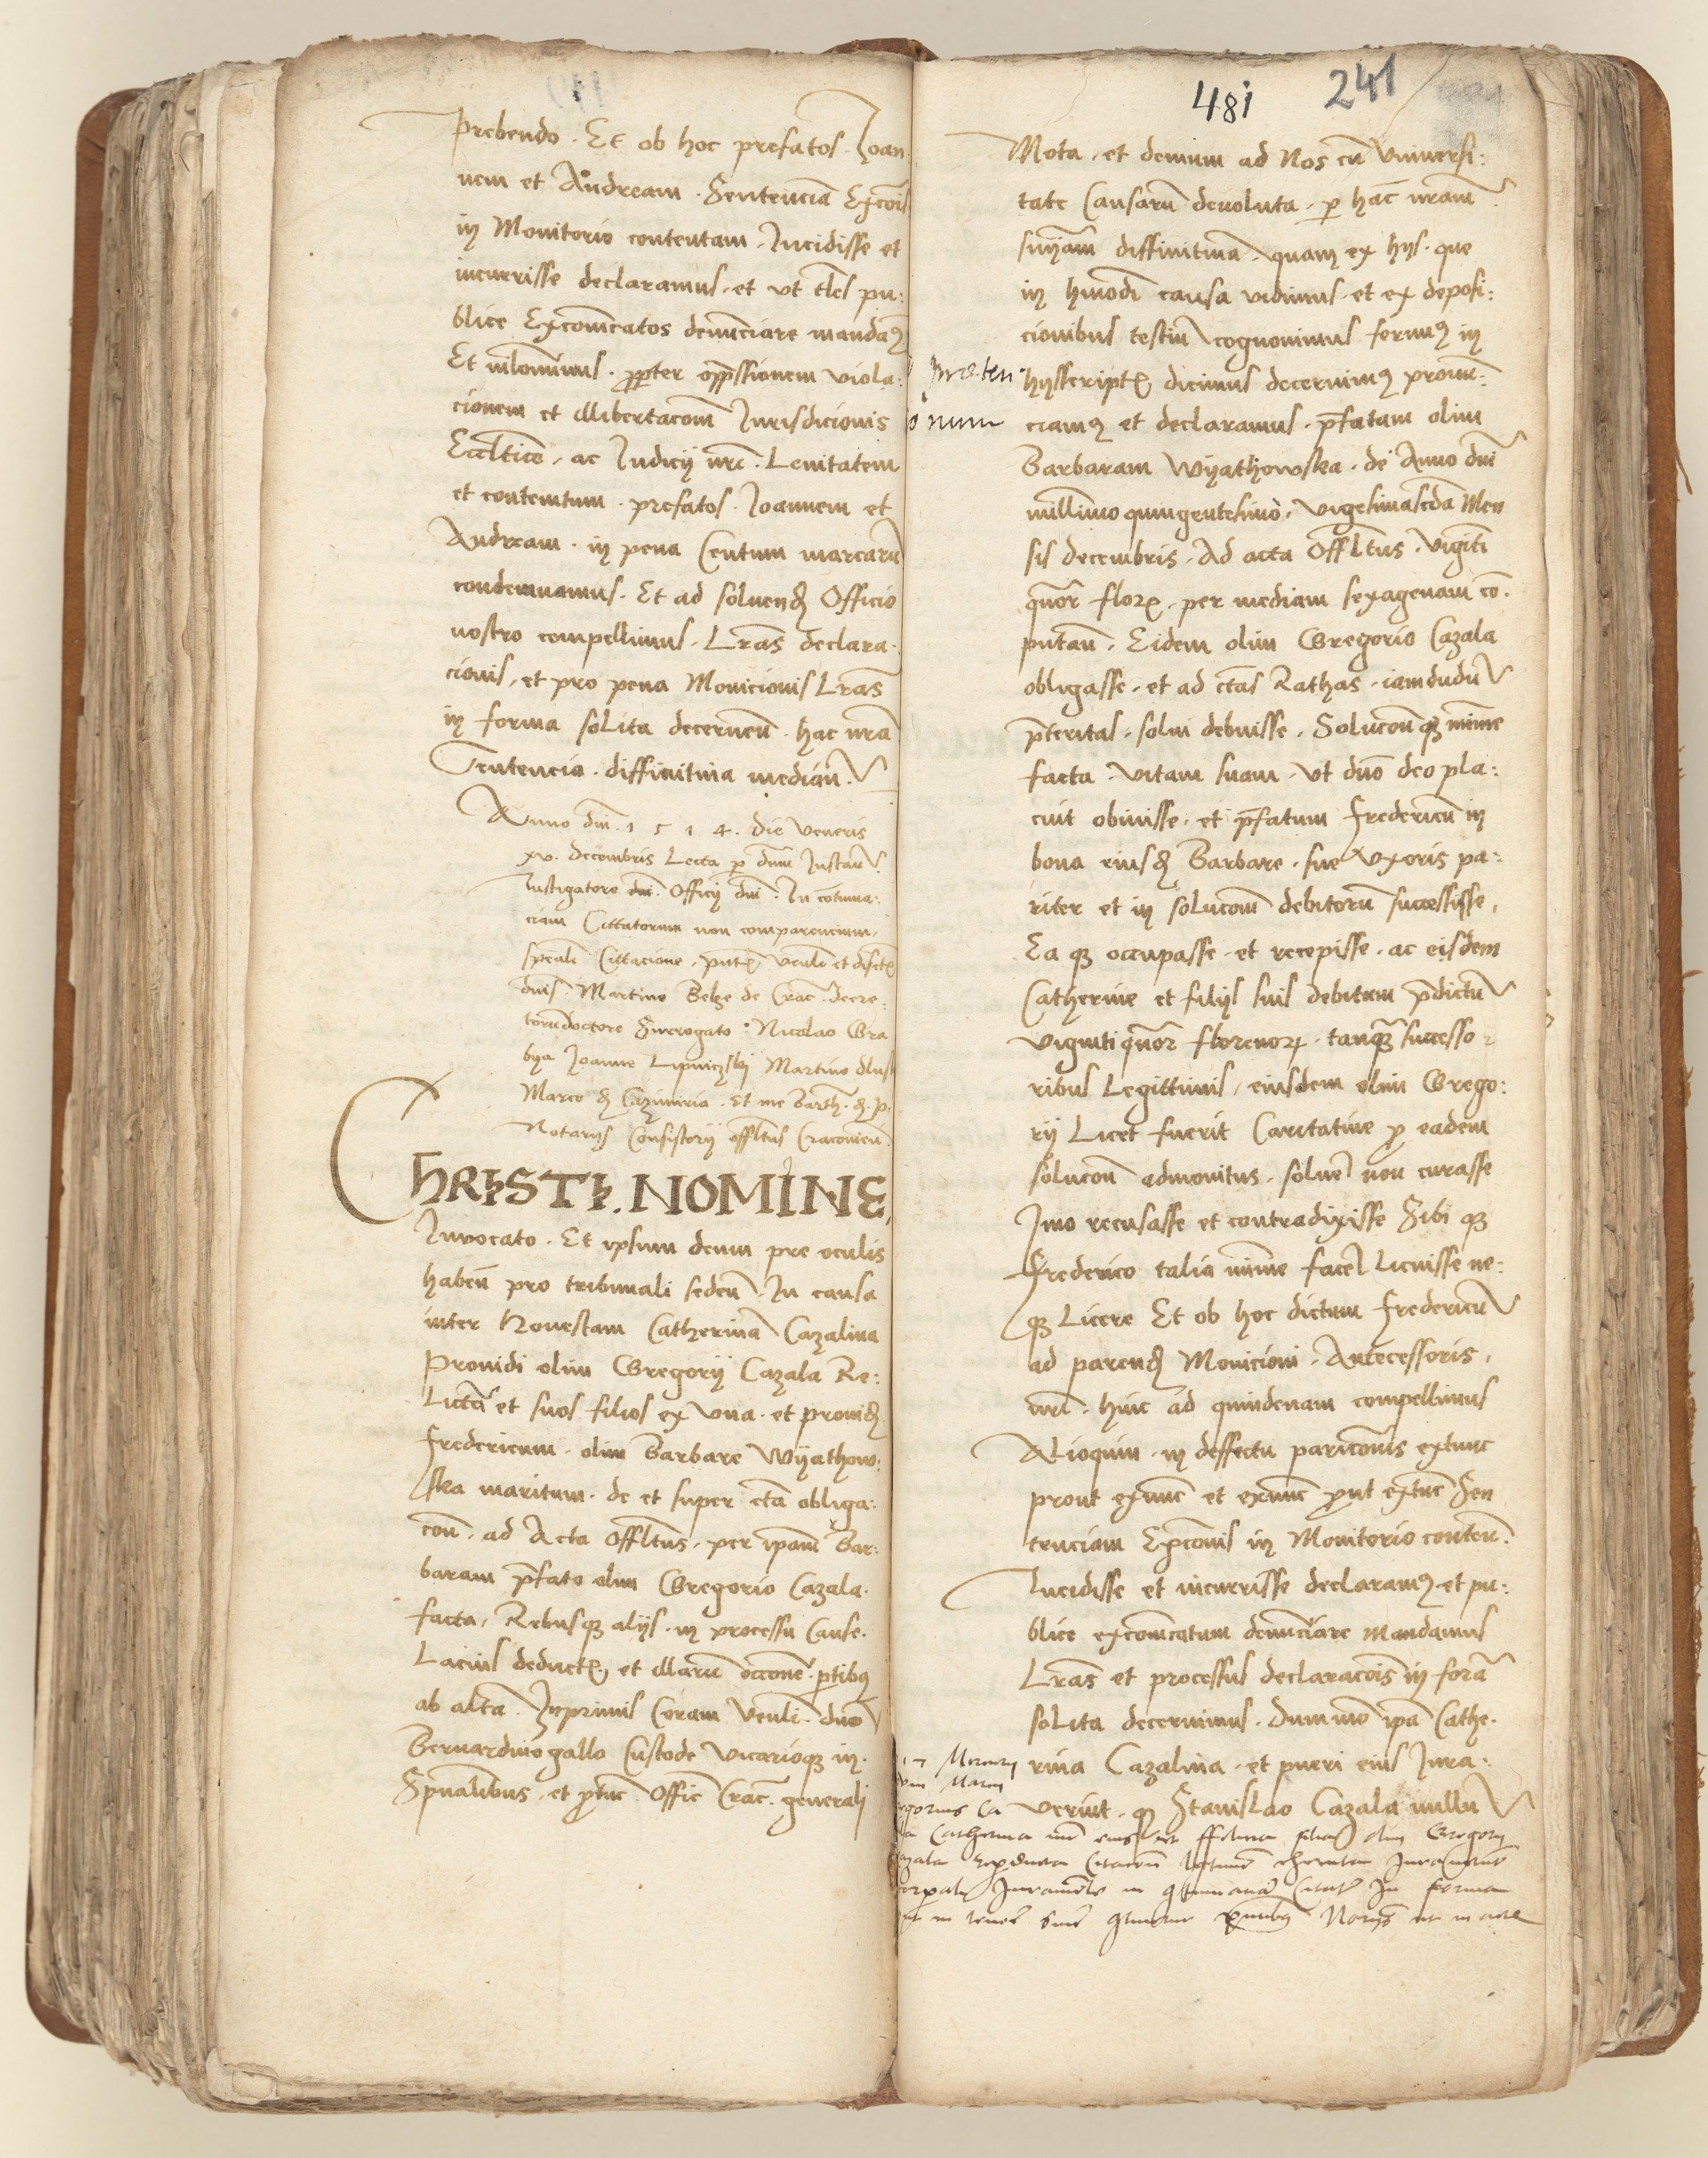 prebendo. Et ob hoc prefatos. Joan
nem et Andream. Sentenciā Excōis
in Monitorio contentam. Incidisse et
incurrisse declaramus. et vt tles pu:
blice Excōicatos denunciare mandamꝰ
Et nihlominus. propter oppressionem viola:
cionem et Jurisdicionis
Ecclitice, ac Judicij nri. Levitatem
et contemtum. prefatos. Joannem et
Andream. in pena Centum marcarū
condemnamus. Et ad soluend Officio
nostro compellimus. Lras declara.
cionis, et pro pena Monicionis Lras
in forma solita decernen. hac nrā
Sentencia. diffinitiua median.
Anno dni. 1 5 1 4. die veneris
xv. decembris Lecta p dnm Instan
Instigatore dni. Officij dni. In cōtuma:
ciam Cittatorum non comparencium,
speali Cittacione, pntꝫ venli et disctꝫ
dnis Martino Belze de Crac. decre:
torū doctore Surrogato. Nicolao Gra
bya Joanne Lipniczskj Martino dlus
Marco d Cazimiria. Et me Barth. d. p.
Notarijs Consistorij offltus Cracovien.
CHRISTI. NOMINE,
Invocato. Et ipsum deum pre oculis
haben pro tribunali seden. In causa
inter Honestam Catherinā Cazalina
Prouidi olim Gregorij Cazala Re:
Lictā et suos filios ex vna. et prouid
Fredericum. olim Barbare Wyathow:
ska maritum. de et super ctā obliga:
con. ad Acta Offltus, per ipam Bar:
baram pfato olim Gregorio Cazala.
facta, Rebusqꝫ alijs. in processu Cause.
Lacius deductꝫ, et illarū occone. ptibꝰ
ab altā. Inprimis Coram venli. dno
Bernardino gallo Custode vicarioqꝫ in.
Spualibus, et ptūc. Offic Crac. generali
481 241
Mota. et demum ad Nos cū vniuersi:
tate Causarū deuoluta. p hāc nram
snijam diffinitiuā. quam ex hijs. que
in hmōdi causa vidimus. et ex deposi:
cionibus testiū cognouimus ferimꝰ in
hijsscriptꝫ dicimus decernimꝰ pronū:
ciamꝰ et declaramus. pfatam olim
Barbaram Wyathowska. de Anno dni
millimo quingentesimo. vigesimasc̄da Men
sis decembris. Ad acta Offltus. viginti
qtuor florꝫ. per mediam sexagenam co.
putan. Eidem olim Gregorio Cazala
obligasse. et ad ctas Rathas. iamdudū
pteritas. solui debuisse. Solucōnqꝫ mīme
facta. vitam suam. vt dno deo pla:
cuit obiuisse. et pfatum Fredericū in
bona eiusd Barbare. sue vxoris pa:
riter et in solucōm debitorū successisse.
Ea qꝫ occupasse. et recepisse. ac eisdem
Catherine et filijs suis debitum pdictū
viginti qtuor florenorꝫ. tanquā successo:
ribus Legittimis, eiusdem olim Grego:
rij Licet fuerit Caritatiue p eadem
solucōn admonitus. soluere non curasse
Imo recusasse et contradixisse Sibi qꝫ
Frederico talia mīme facere Licuisse ne:
qꝫ Licere Et ob hoc dictum Fredericū
ad parend Monicioni. Antecessoris.
nri. hinc ad quindenam compellimus
Alioquin. in deffectu paricōnis extunc
prout exnūc et exnūc prout extūc Sen
tenciam Excōis in Monitorio conten.
Incidisse et incurrisse declaramꝰ. et pu:
blice excōicatum denunciare mandamus
Lras et processus declaracōis in formā
solita decernimus. dummō ipā Cathe.
rina Cazalina. et pueri eius Jura:
verint. qꝫ Stanislao Cazala nullū